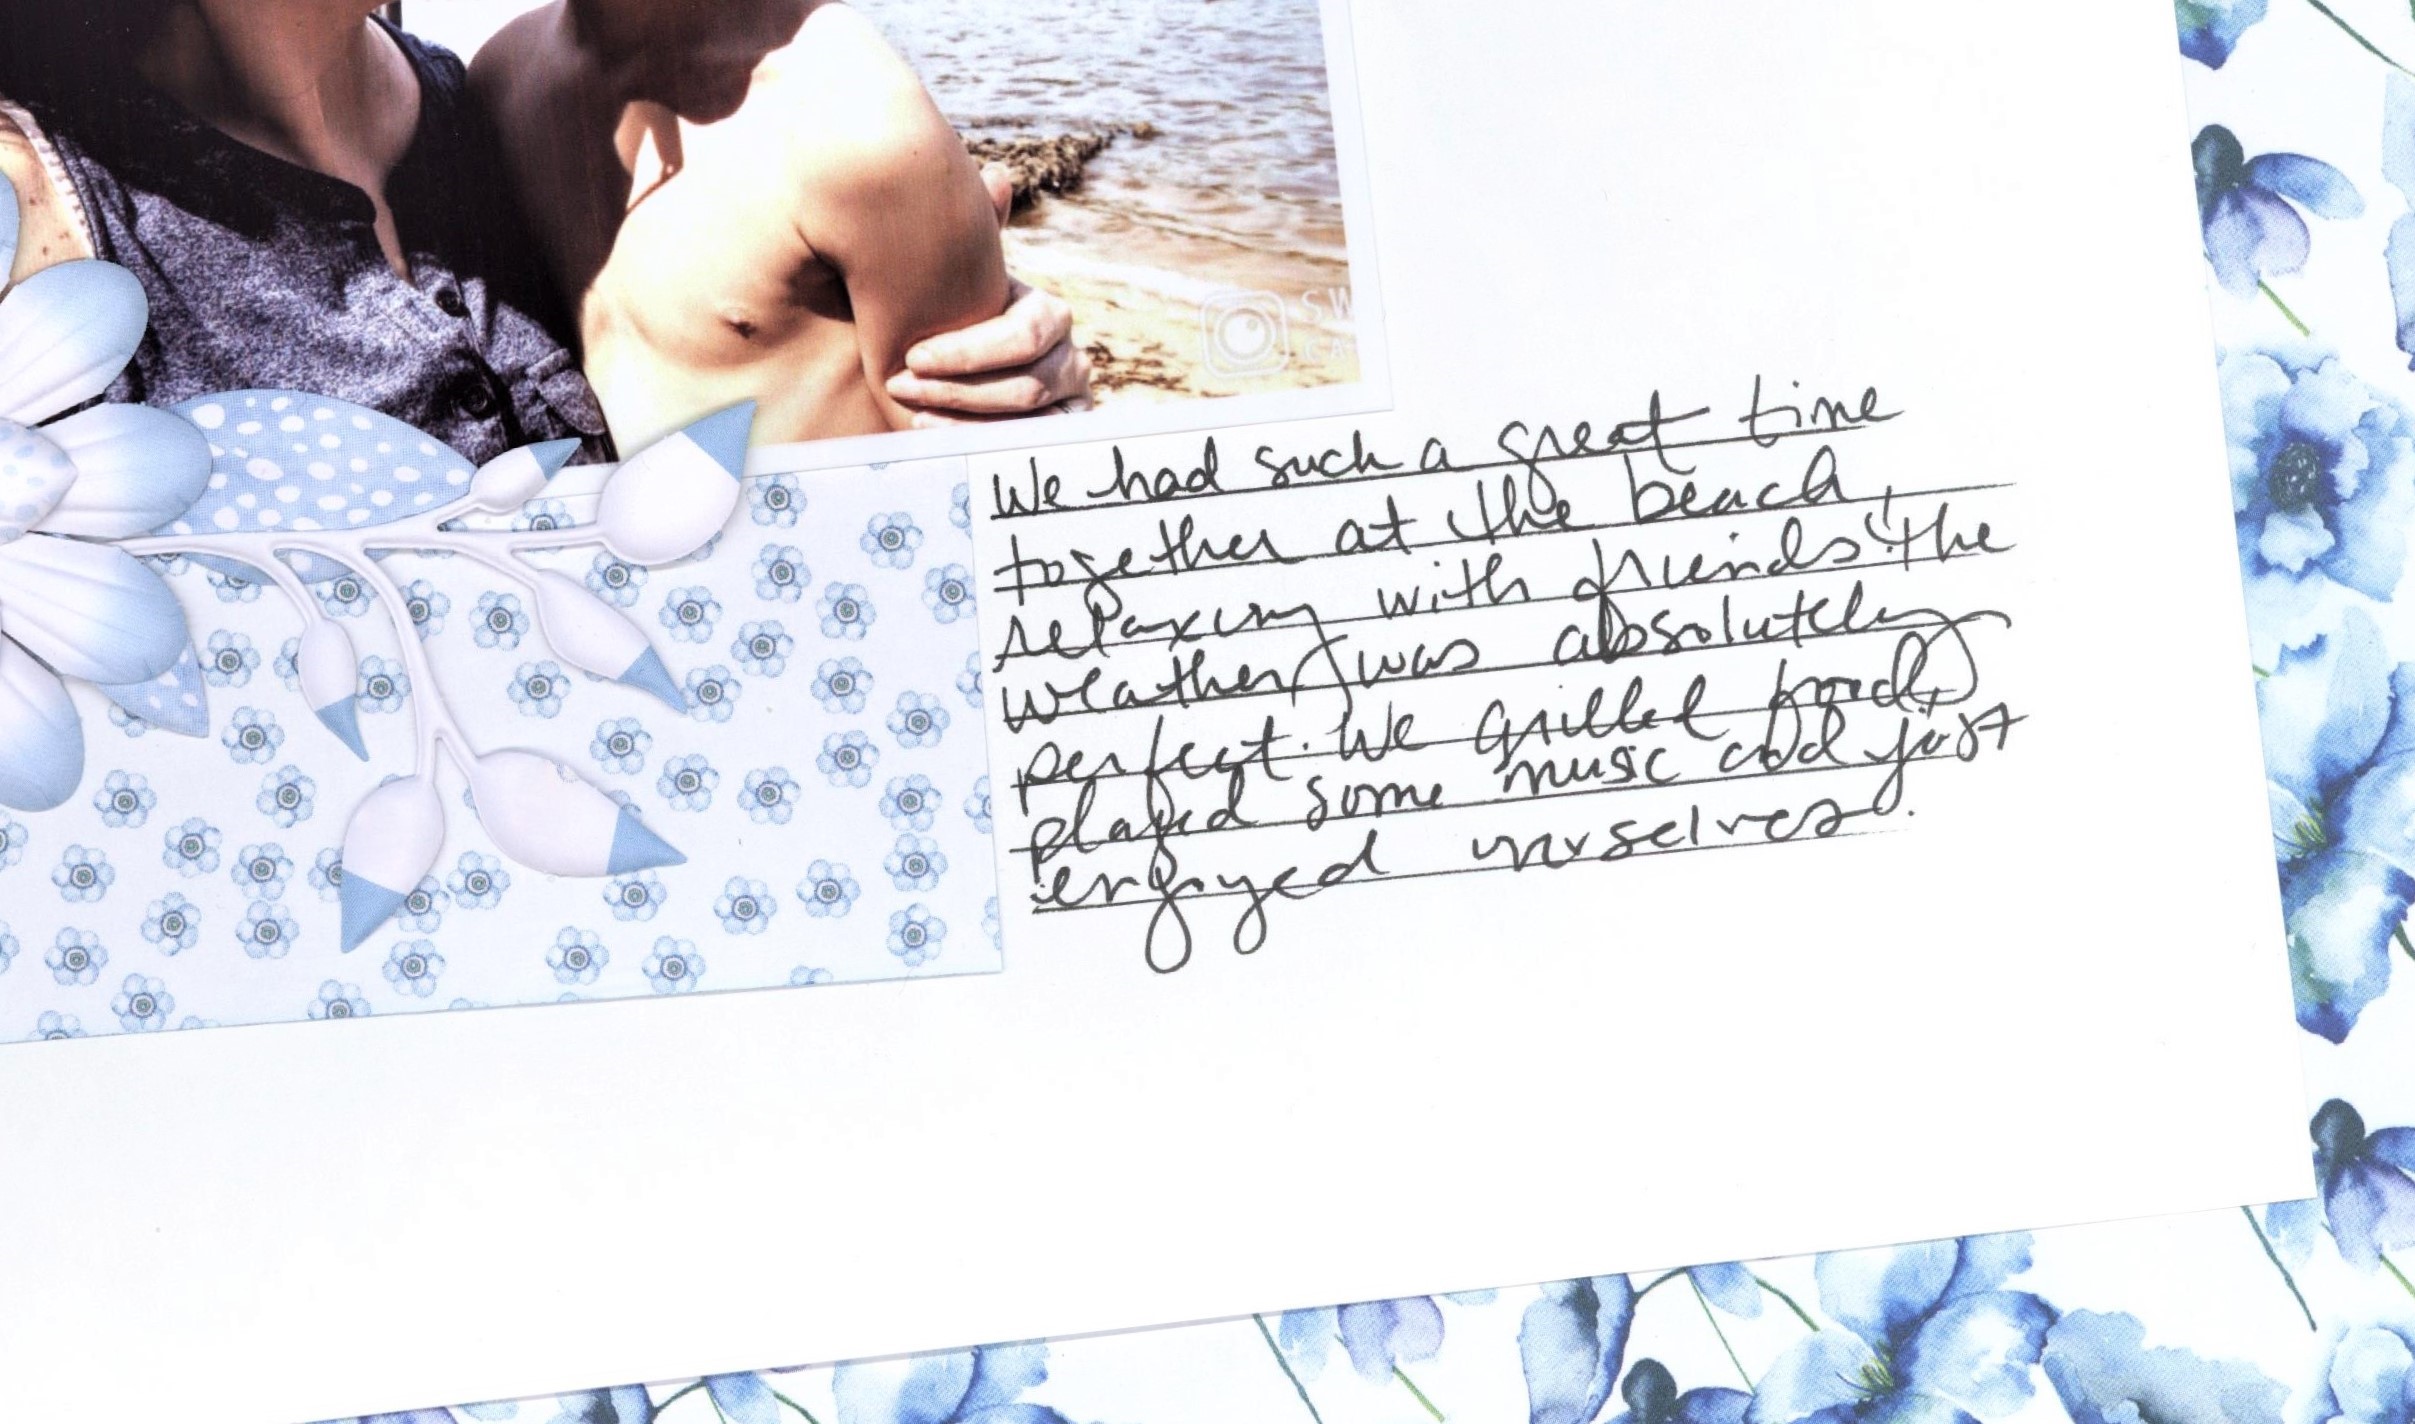 SW
CA
We had such a great time
together at the beach,
relaxing with friends! the
weather was absolutely
perfect. We grilled food,
played some music and just
enjoyed ourselves.